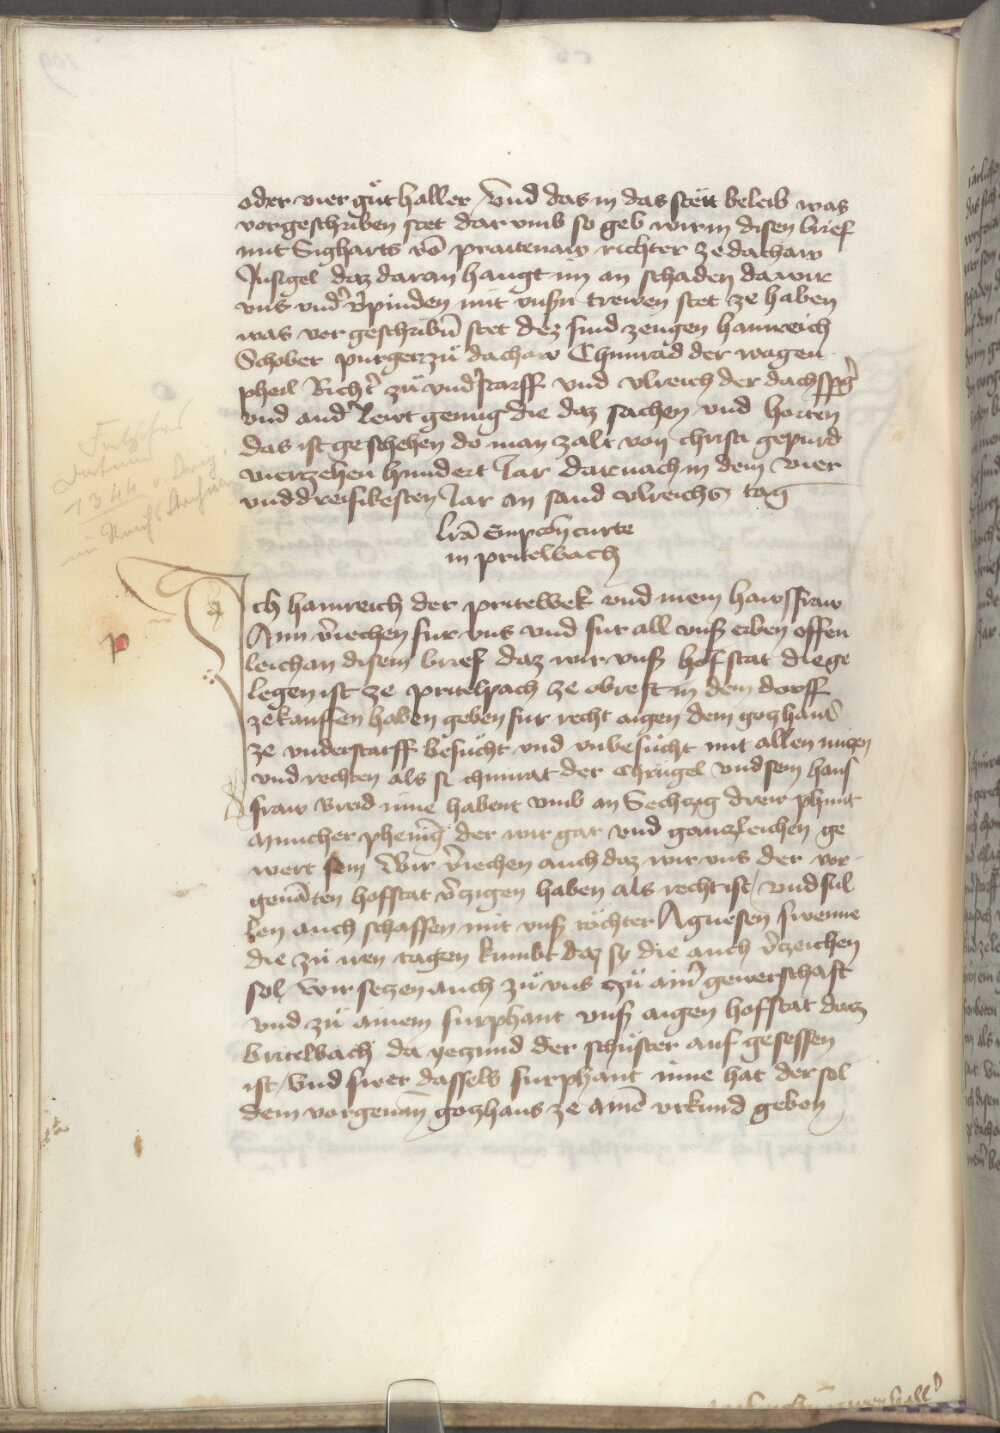 oder vier gůt haller Vnd das in das stett beleib was
vorgeschriben stet dar vmb so geb wir in disen brief
mit Sigharts võ praitenaw richter ze dachaw
Insigel daz daran hangt im an schaden da wir
vns vnd̉ v̉pinden mit vnsn̉ trewen stet ze haben
was vor geschribn̄ stet dez sind zeugen hainreich
Schober purger zů dachaw Chunrad der wagen
pheil Richt̉ zů vnd̉starff und vlreich der dachsspg̉
vnd and̉ lewt genug die daz sachen vnd horten
das ist geschehen do man zalt von christi gepurd
vierzehen hundert Jar darnach in dem vier
vnd dreissikesten Jar an sand vlreichs tag
lrā empcōn curie
in pritelbach
Ich hainreich der pritewek vnd mein hawsfraw
Ann v̉iechen fur vns vnd fur all vnß erben offen
leich an disem brief daz wir vnß hofstat die ge
legen ist ze pritelpach ze obrest in dem dorff
ze kauffen haben geben fur recht aigen dem gozhaus
ze vnderstarff besůcht vnd vnbesůcht mit allen nuzen
vnd rechten als si chunrat der Chrůgel vnd sein haus
fraw inne habent vmb an Sechtzig drew phunt
municher phenīg der wir gar vnd ganzleichen ge
wert sein Wir v̉iechen auch daz wir vns der vor
genāten hofstat v̉zigen haben als recht ist / vnd sul
len auch schaffen mit vnß tochter Agnesen swenne
die zů iren tagen kumbt daz sy die auch v̉zeichen
sol / wir setzen auch zů vns zů ain̉ gewerschaft
vnd zů ainem furphant vnß aigen hoffstat datz
britelbach da yeczund der schůster auf gesessen
ist / vnd swer dasselb furphant inne hat der sol
dem vorgenan̄ gozhaus ze ainē vrkund geben
p